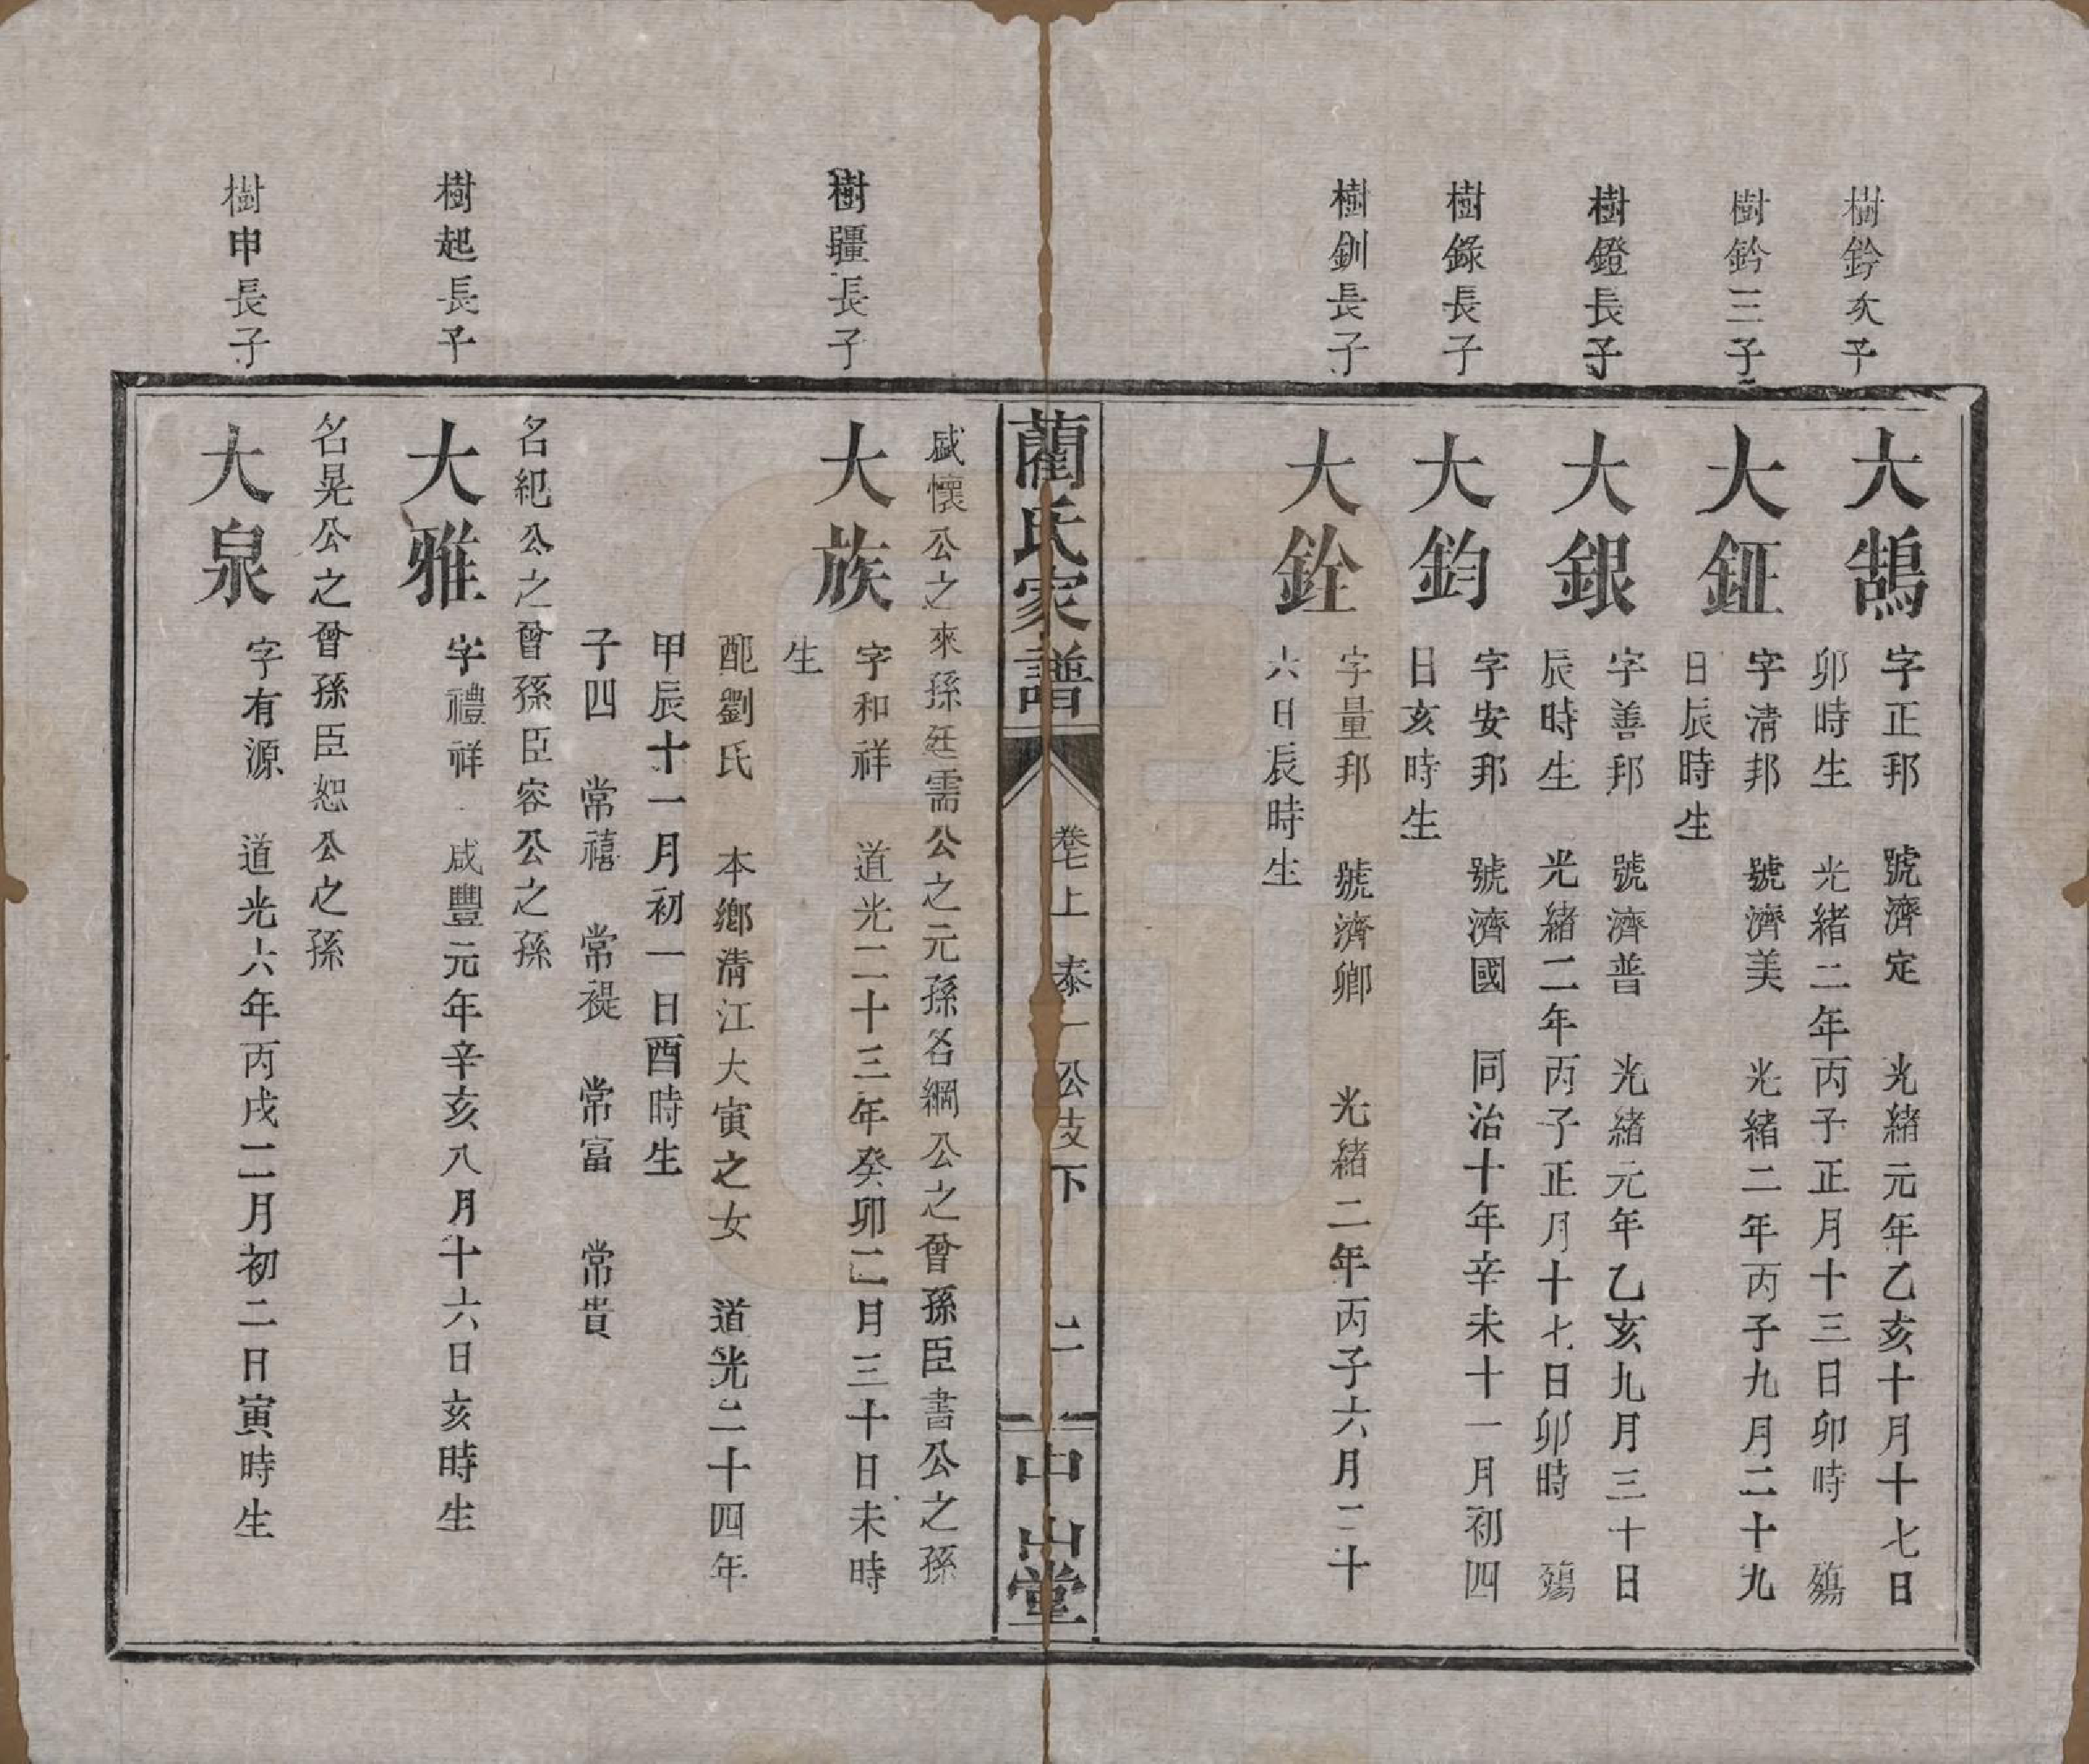 樹鈴次子
大鵠
字正邦　號濟定　光緒元年乙亥十月十七日
卯時生　光緒二年丙子正月十三日卯時　殤
樹鈐三子
大鉦
字清邦　號濟美　光緒二年丙子九月二十九
日辰時生
樹鐙長子
大銀
字善邦　號濟普　光緒元年乙亥九月三十日
辰時生　光緒二年丙子正月十七日卯時　殤
樹錄長子
大鈞
字安邦　號濟國　同治十年辛未十一月初四
日亥時生
樹釧長子
大銓
字量邦　號濟卿　光緒二年丙子六月二十
六日辰時生
藺氏家譜　卷七上　泰一公支下　二　中山堂
盛懷公之來孫廷需公之元孫名綱公之曾孫臣書公之孫
樹疆長子
大族
字和祥　道光二十三年癸卯二月三十日未時
生
配劉氏　本鄉清江大寅之女　道光二十四年
甲辰十一月初一日酉時生
子四　常禧　常禔　常富　常貴
名紀公之曾孫臣容公之孫
樹起長子
大雅
字禮祥　咸豐元年辛亥八月十六日亥時生
名晃公之曾孫臣恕公之孫
樹申長子
大泉
字有源　道光六年丙戌二月初二日寅時生